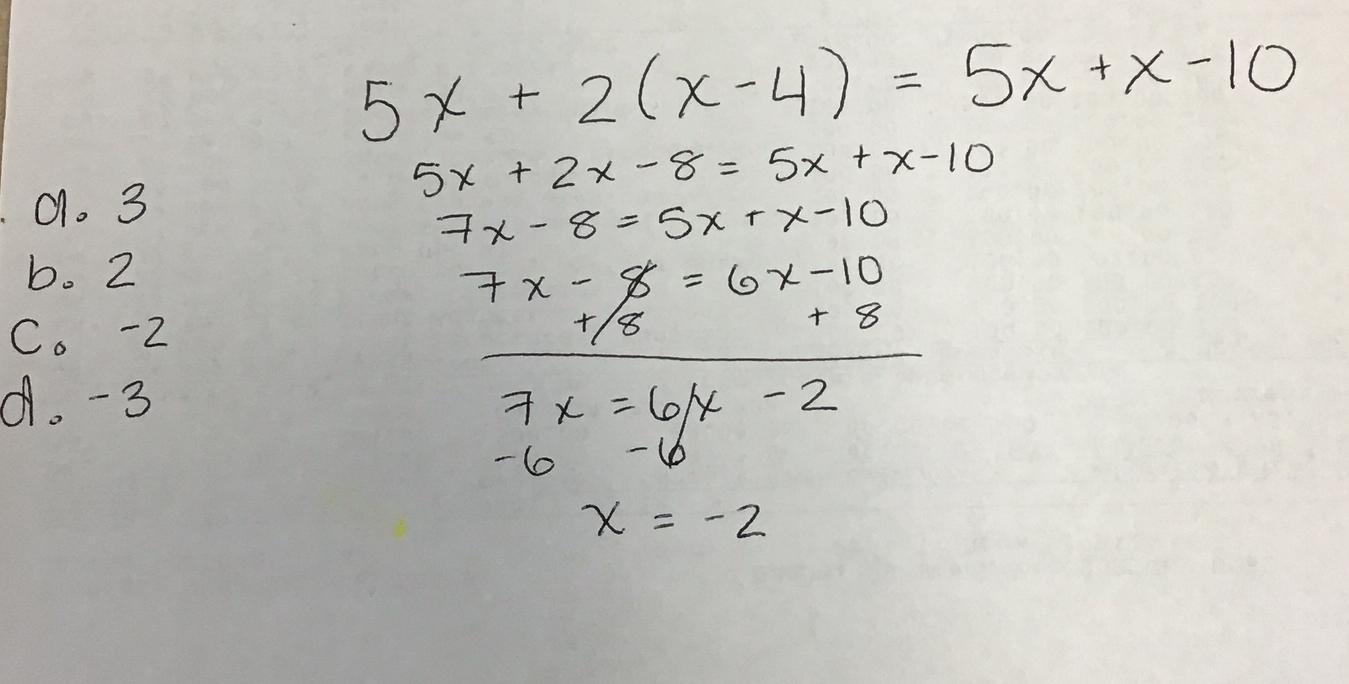 5x + 2(x-4) = 5x+x-10
5x + 2x - 8 = 5x + x-10
7x - 8 = 5x + x-10
7x - 8 = 6x-10
+ 8 + 8
7x = 6x - 2
-6 -6
x = -2
a. 3
b. 2
c. -2
d. -3